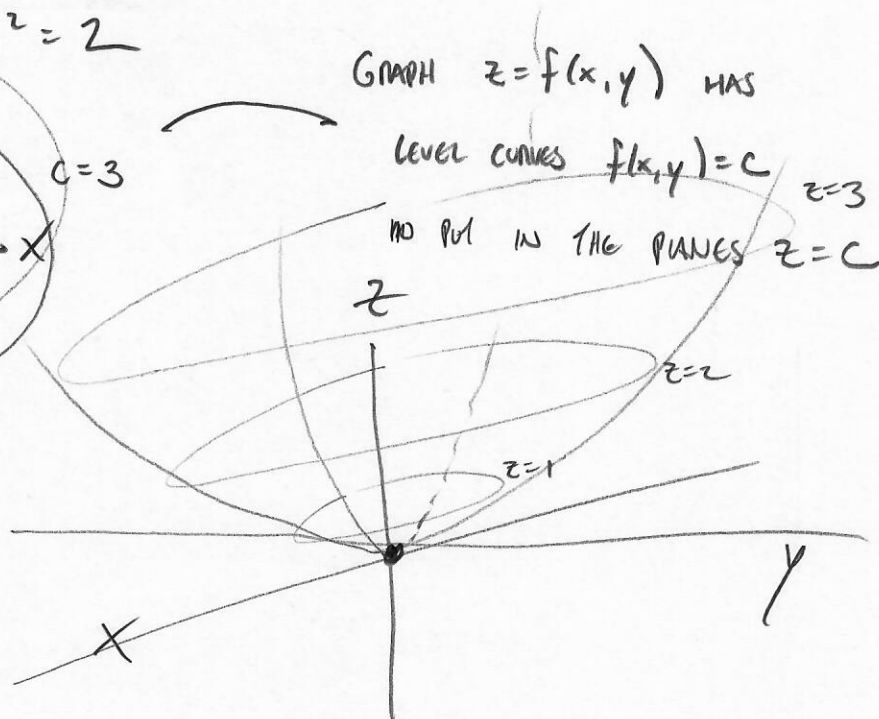 ² = 2
GRAPH z = f(x, y) HAS
LEVEL CURVES f(x, y) = C
PUT IN THE PLANES z = C
C = 3
X
z=3
Z
z=2
z=1
Y
X